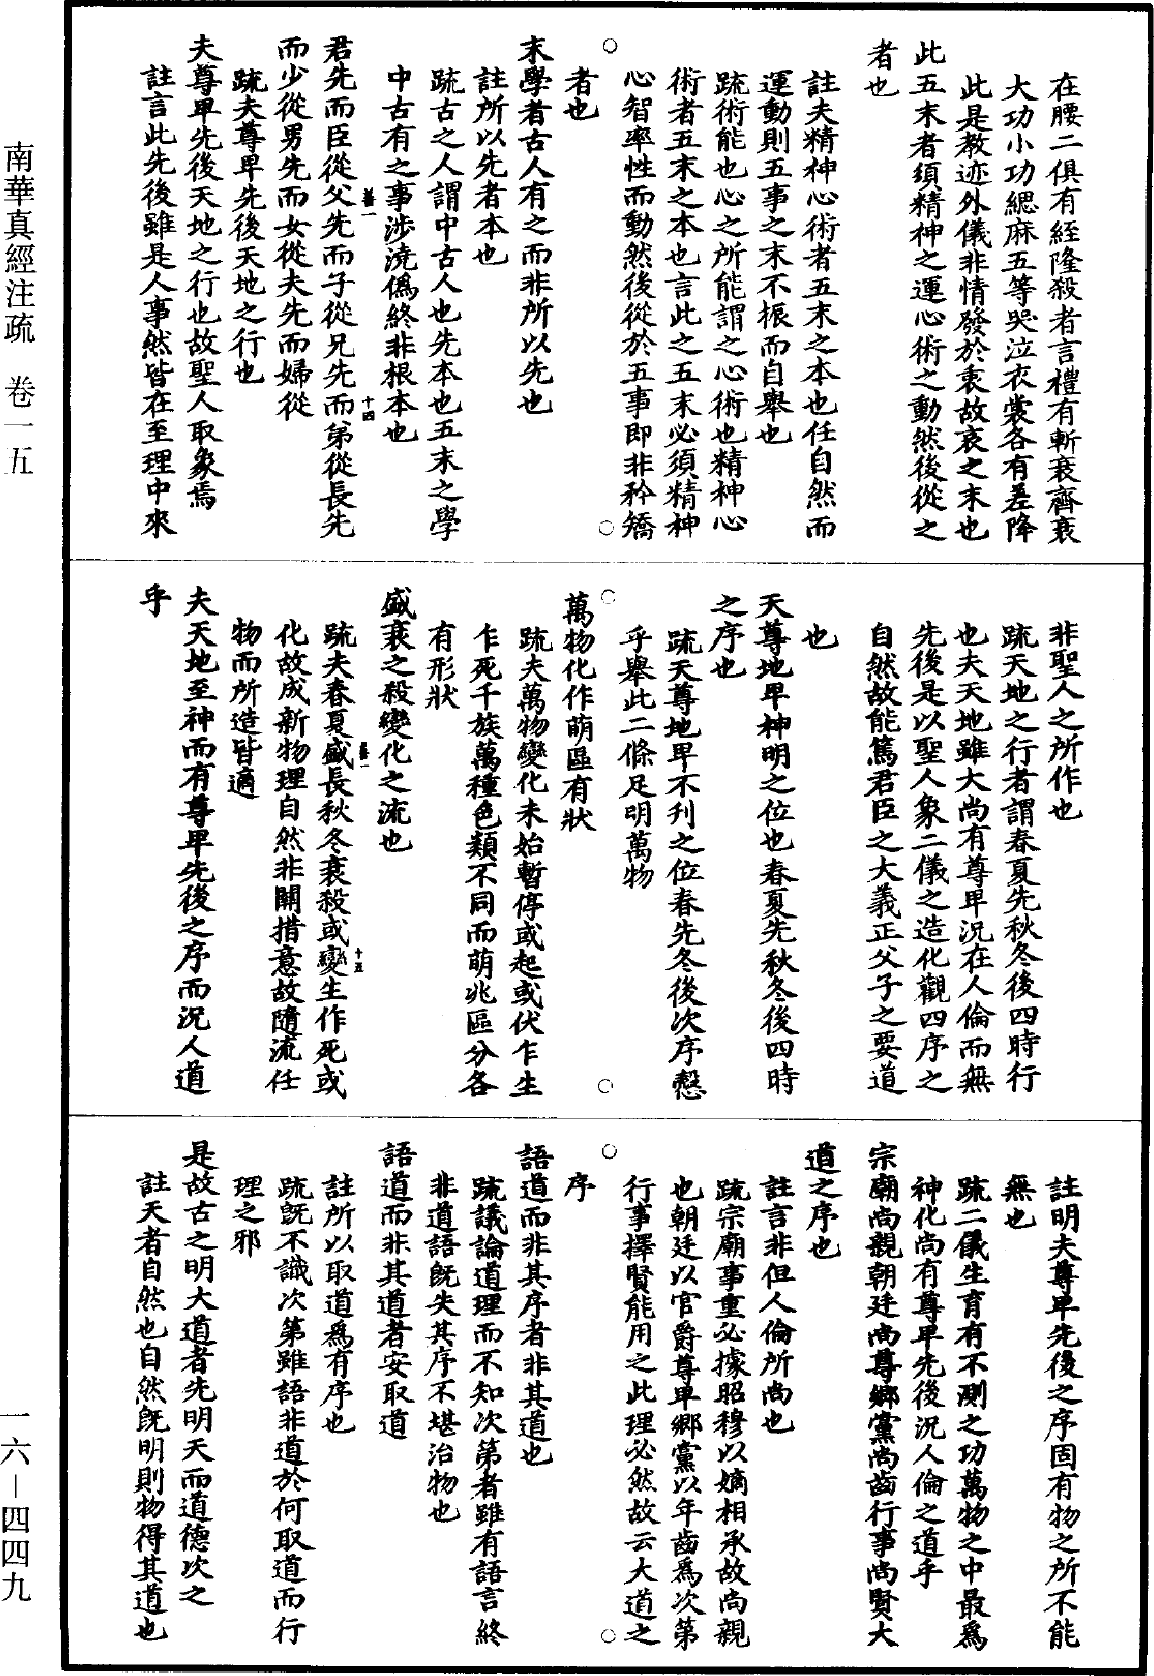 南華真經注疏　卷一五
一六—四四九
在腰二俱有絰隆殺者言禮有斬衰齊衰
大功小功緦麻五等哭泣衣裳各有差降
此是教迹外儀非情發於衷故哀之末也
此五末者須精神之運心術之動然後從之
者也
註夫精神心術者五末之本也任自然而
運動則五事之末不振而自舉也
疏術能也心之所能謂之心術也精神心
術者五末之本也言此之五末必須精神
心智率性而動然後從於五事即非矜矯
者也
末學者古人有之而非所以先也
註所以先者本也
疏古之人謂中古人也先本也五末之學
中古有之事涉澆偽終非根本也
君先而臣從父先而子從兄先而弟從長先
而少從男先而女從夫先而婦從
疏夫尊卑先後天地之行也
夫尊卑先後天地之行也故聖人取象焉
註言此先後雖是人事然皆在至理中來
非聖人之所作也
疏天地之行者謂春夏先秋冬後四時行
也夫天地雖大尚有尊卑況在人倫而無
先後是以聖人象二儀之造化觀四序之
自然故能篤君臣之大義正父子之要道
也
天尊地卑神明之位也春夏先秋冬後四時
之序也
疏天尊地卑不刊之位春先冬後次序慤
乎舉此二條足明萬物
萬物化作萌區有狀
疏夫萬物變化未始暫停或起或伏乍生
乍死千族萬種色類不同而萌兆區分各
有形狀
盛衰之殺變化之流也
疏夫春夏盛長秋冬衰殺或變生作死或
化故成新物理自然非關措意故隨流任
物而所造皆適
夫天地至神而有尊卑先後之序而況人道
乎
註明夫尊卑先後之序固有物之所不能
無也
疏二儀生育有不測之功萬物之中最為
神化尚有尊卑先後況人倫之道乎
宗廟尚親朝廷尚尊鄉黨尚齒行事尚賢大
道之序也
註言非但人倫所尚也
疏宗廟事重必據昭穆以嫡相承故尚親
也朝廷以官爵尊卑鄉黨以年齒為次第
行事擇賢能用之此理必然故云大道之
序
語道而非其序者非其道也
疏議論道理而不知次第者雖有語言終
非道語既失其序不堪治物也
語道而非其道者安取道
註所以取道為有序也
疏既不識次第雖語非道於何取道而行
理之邪
是故古之明大道者先明天而道德次之
註天者自然也自然既明則物得其道也